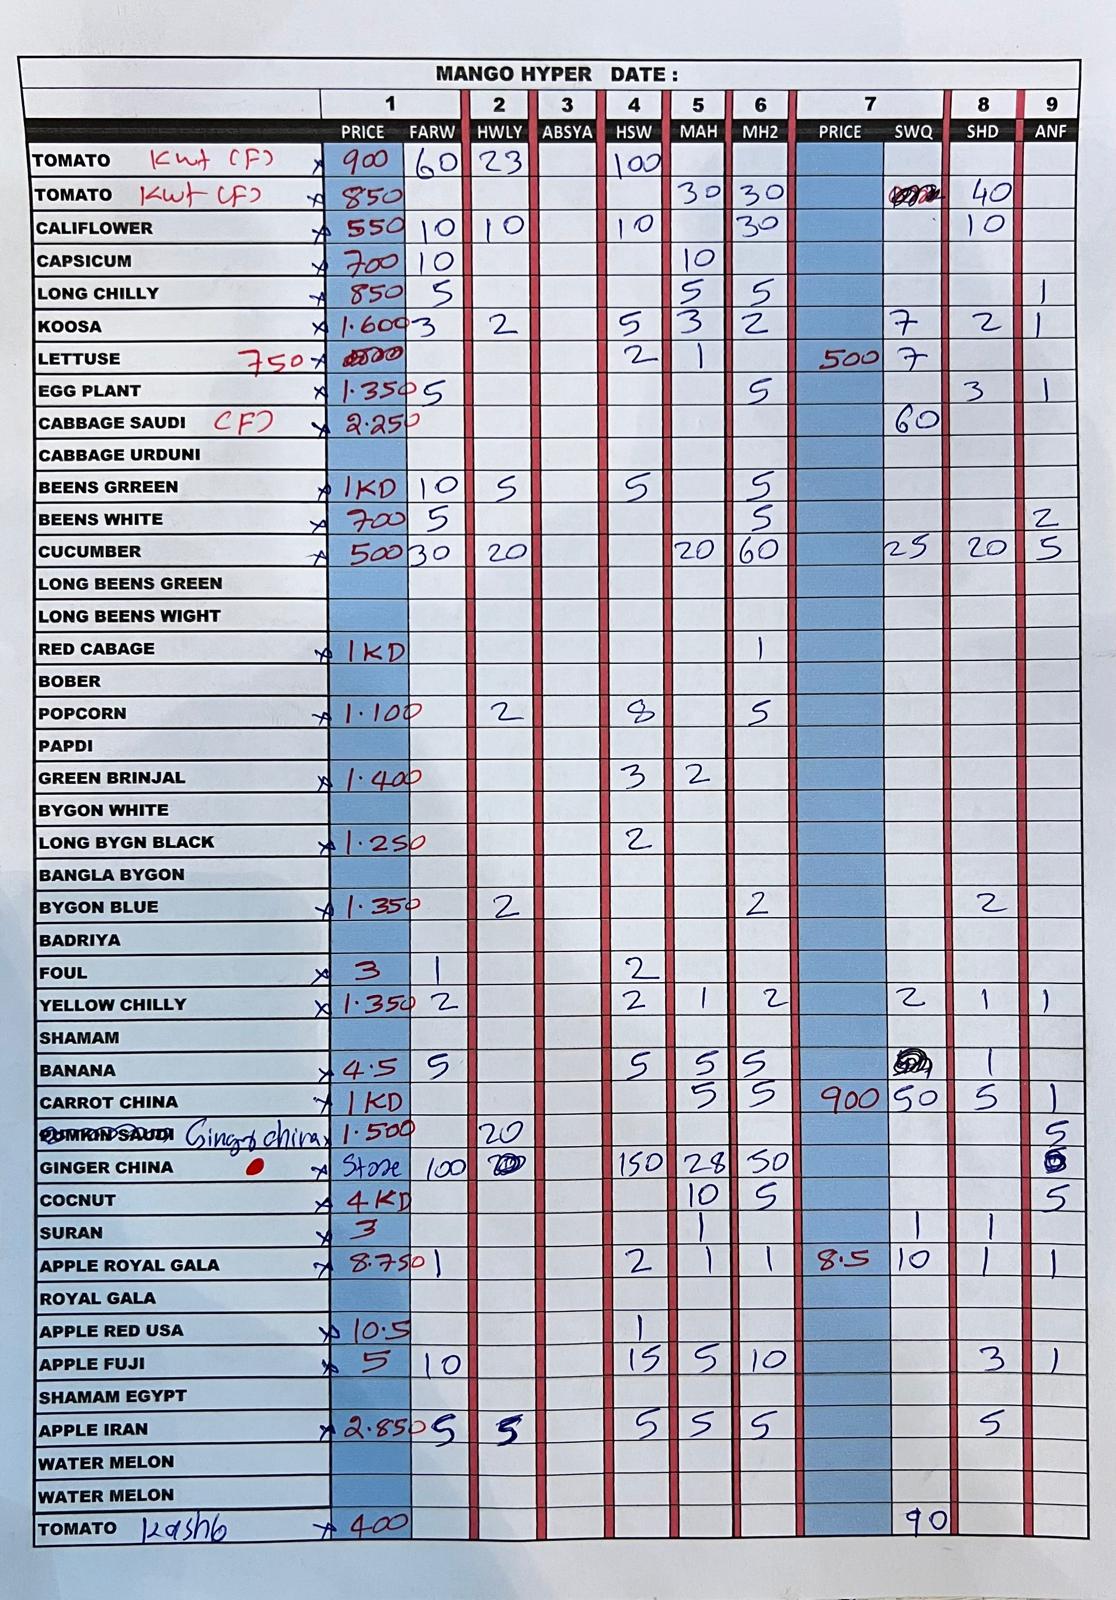 MANGO HYPER DATE :
1 2 3 4 5 6 7 8 9
PRICE FARW HWLY ABSYA HSW MAH MH2 PRICE SWQ SHD ANF
TOMATO Kwt (F) x 900 60 23 100
TOMATO Kwt (F) x 850 30 30 40
CALIFLOWER x 550 10 10 10 30 10
CAPSICUM x 700 10 10
LONG CHILLY x 850 5 5 5 1
KOOSA x 1.600 3 2 5 3 2 7 2 1
LETTUSE 750 x 2 1 500 7
EGG PLANT x 1.350 5 5 3 1
CABBAGE SAUDI (F) x 2.250 60
CABBAGE URDUNI
BEENS GRREEN x 1KD 10 5 5 5
BEENS WHITE x 700 5 5 2
CUCUMBER x 500 30 20 20 60 25 20 5
LONG BEENS GREEN
LONG BEENS WIGHT
RED CABAGE x 1KD 1
BOBER
POPCORN x 1.100 2 8 5
PAPDI
GREEN BRINJAL x 1.400 3 2
BYGON WHITE
LONG BYGN BLACK x 1.250 2
BANGLA BYGON
BYGON BLUE x 1.350 2 2 2
BADRIYA
FOUL x 3 1 2
YELLOW CHILLY x 1.350 2 2 1 2 2 1 1
SHAMAM
BANANA x 4.5 5 5 5 5 1
CARROT CHINA x 1KD 5 5 900 50 5 1
PUMKIN SAUDI Ginger china x 1.500 20 5
GINGER CHINA x Store 100 150 28 50
COCNUT x 4KD 10 5 5
SURAN x 3 1 1 1
APPLE ROYAL GALA x 8.750 1 2 1 1 8.5 10 1 1
ROYAL GALA
APPLE RED USA x 10.5 1
APPLE FUJI x 5 10 15 5 10 3 1
SHAMAM EGYPT
APPLE IRAN x 2.850 5 5 5 5 5 5
WATER MELON
WATER MELON
TOMATO Kashb x 400 90